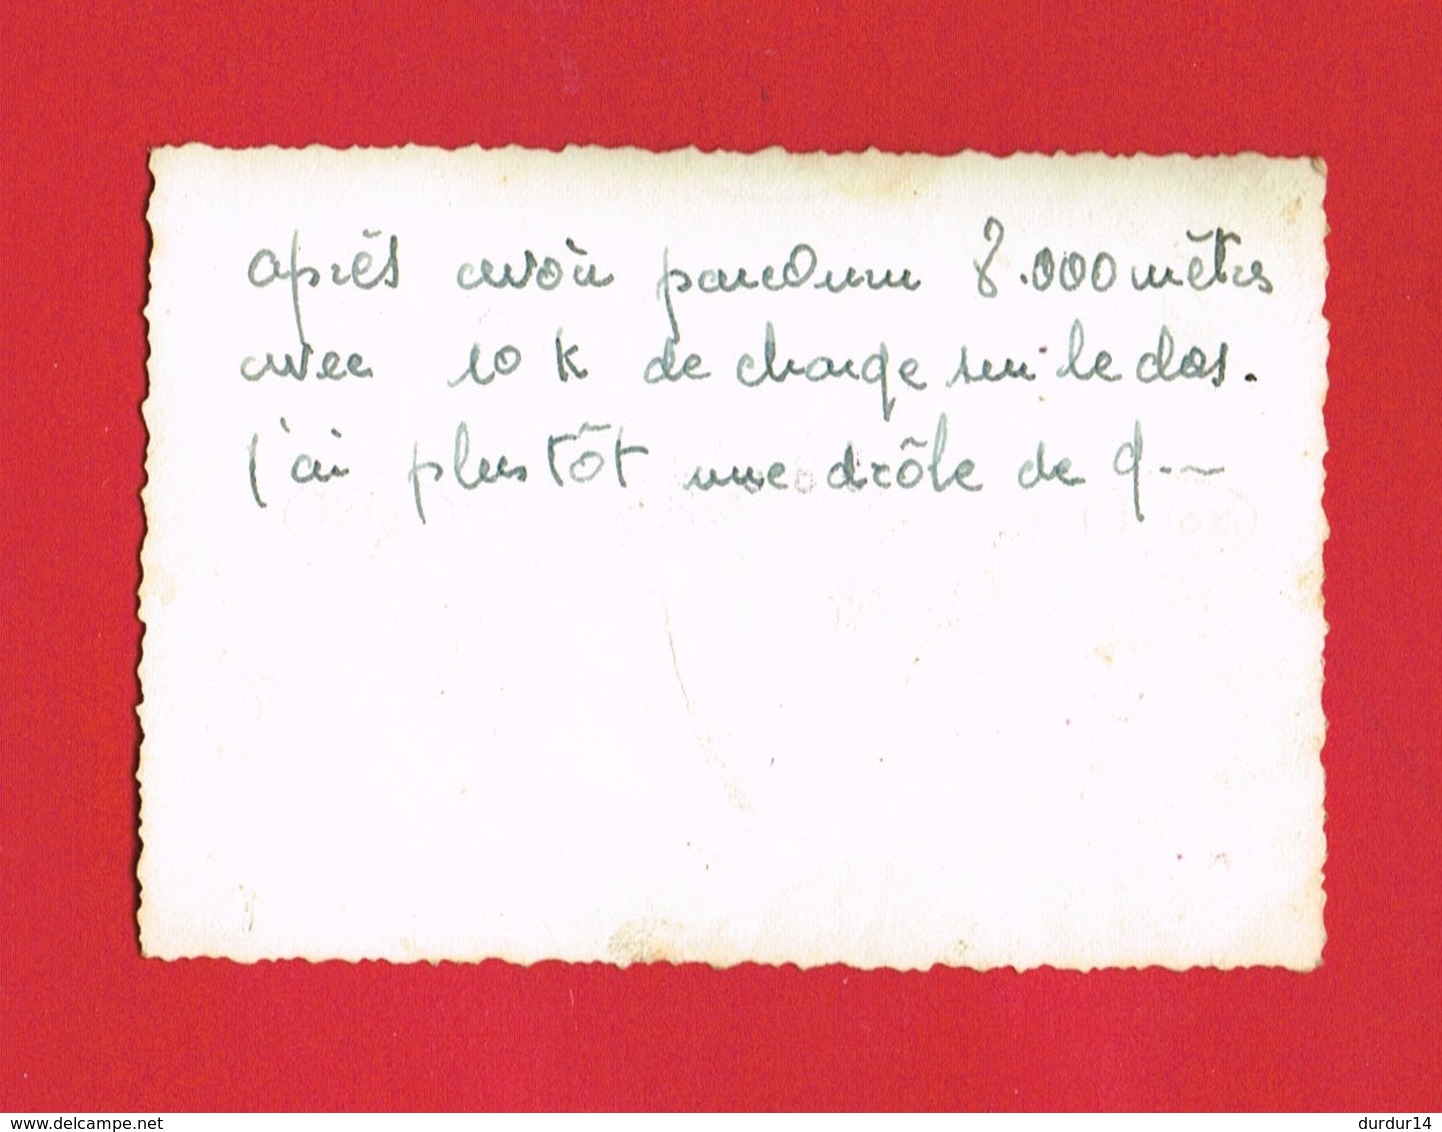 après avoir parcouru 8.000 mètres
avec 10 K de charge sur le dos.
j'ai plustôt une drôle de g...
www.delcampe.net
durdur14